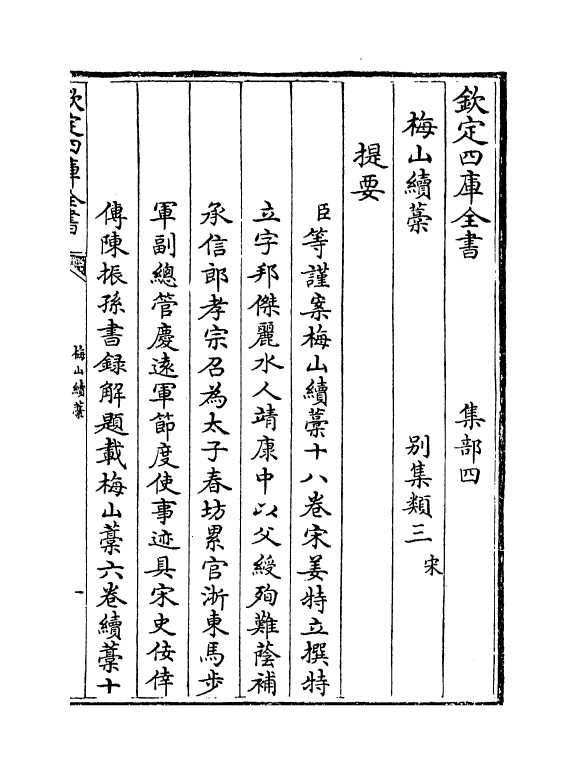 欽定四庫全書　集部四
梅山續藁　别集類三宋
提要
臣等謹案梅山續藁十八卷宋姜特立撰特
立字邦傑麗水人靖康中以父綬殉難蔭補
承信郎孝宗召為太子春坊累官浙東馬步
軍副總管慶逺軍節度使事迹具宋史佞倖
傳陳振孫書録解題載梅山藁六卷續藁十
欽定四庫全書
梅山續藁
一